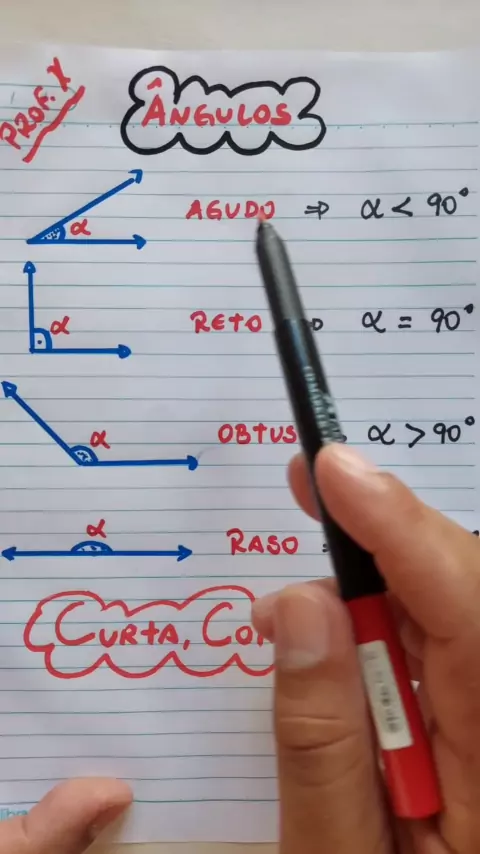 PROF. X
ÂNGULOS
α AGUDO ⇒ α < 90°
α RETO ⇒ α = 90°
α OBTUS α > 90°
α RASO
CURTA,